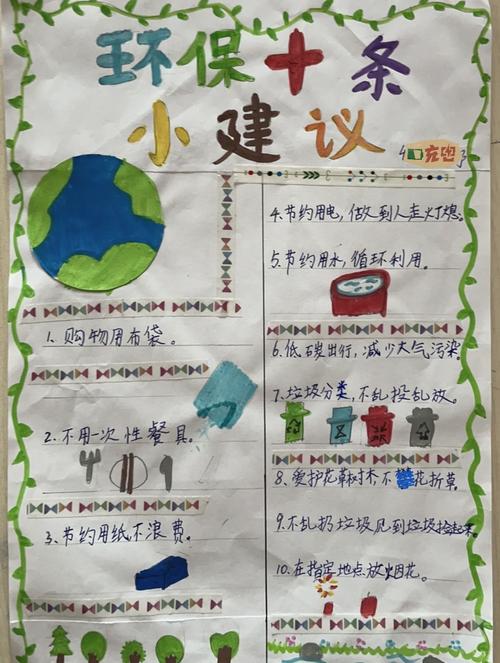 环保十条
小建议
1. 购物用布袋。
2. 不用一次性餐具。
3. 节约用纸不浪费。
4. 节约用电,做到人走灯熄。
5. 节约用水,循环利用。
6. 低碳出行,减少大气污染
7. 垃圾分类,不乱投乱放。
8. 爱护花草树木不 花折草
9. 不乱扔垃圾见到垃圾捡起来
10. 在指定地点放烟花。